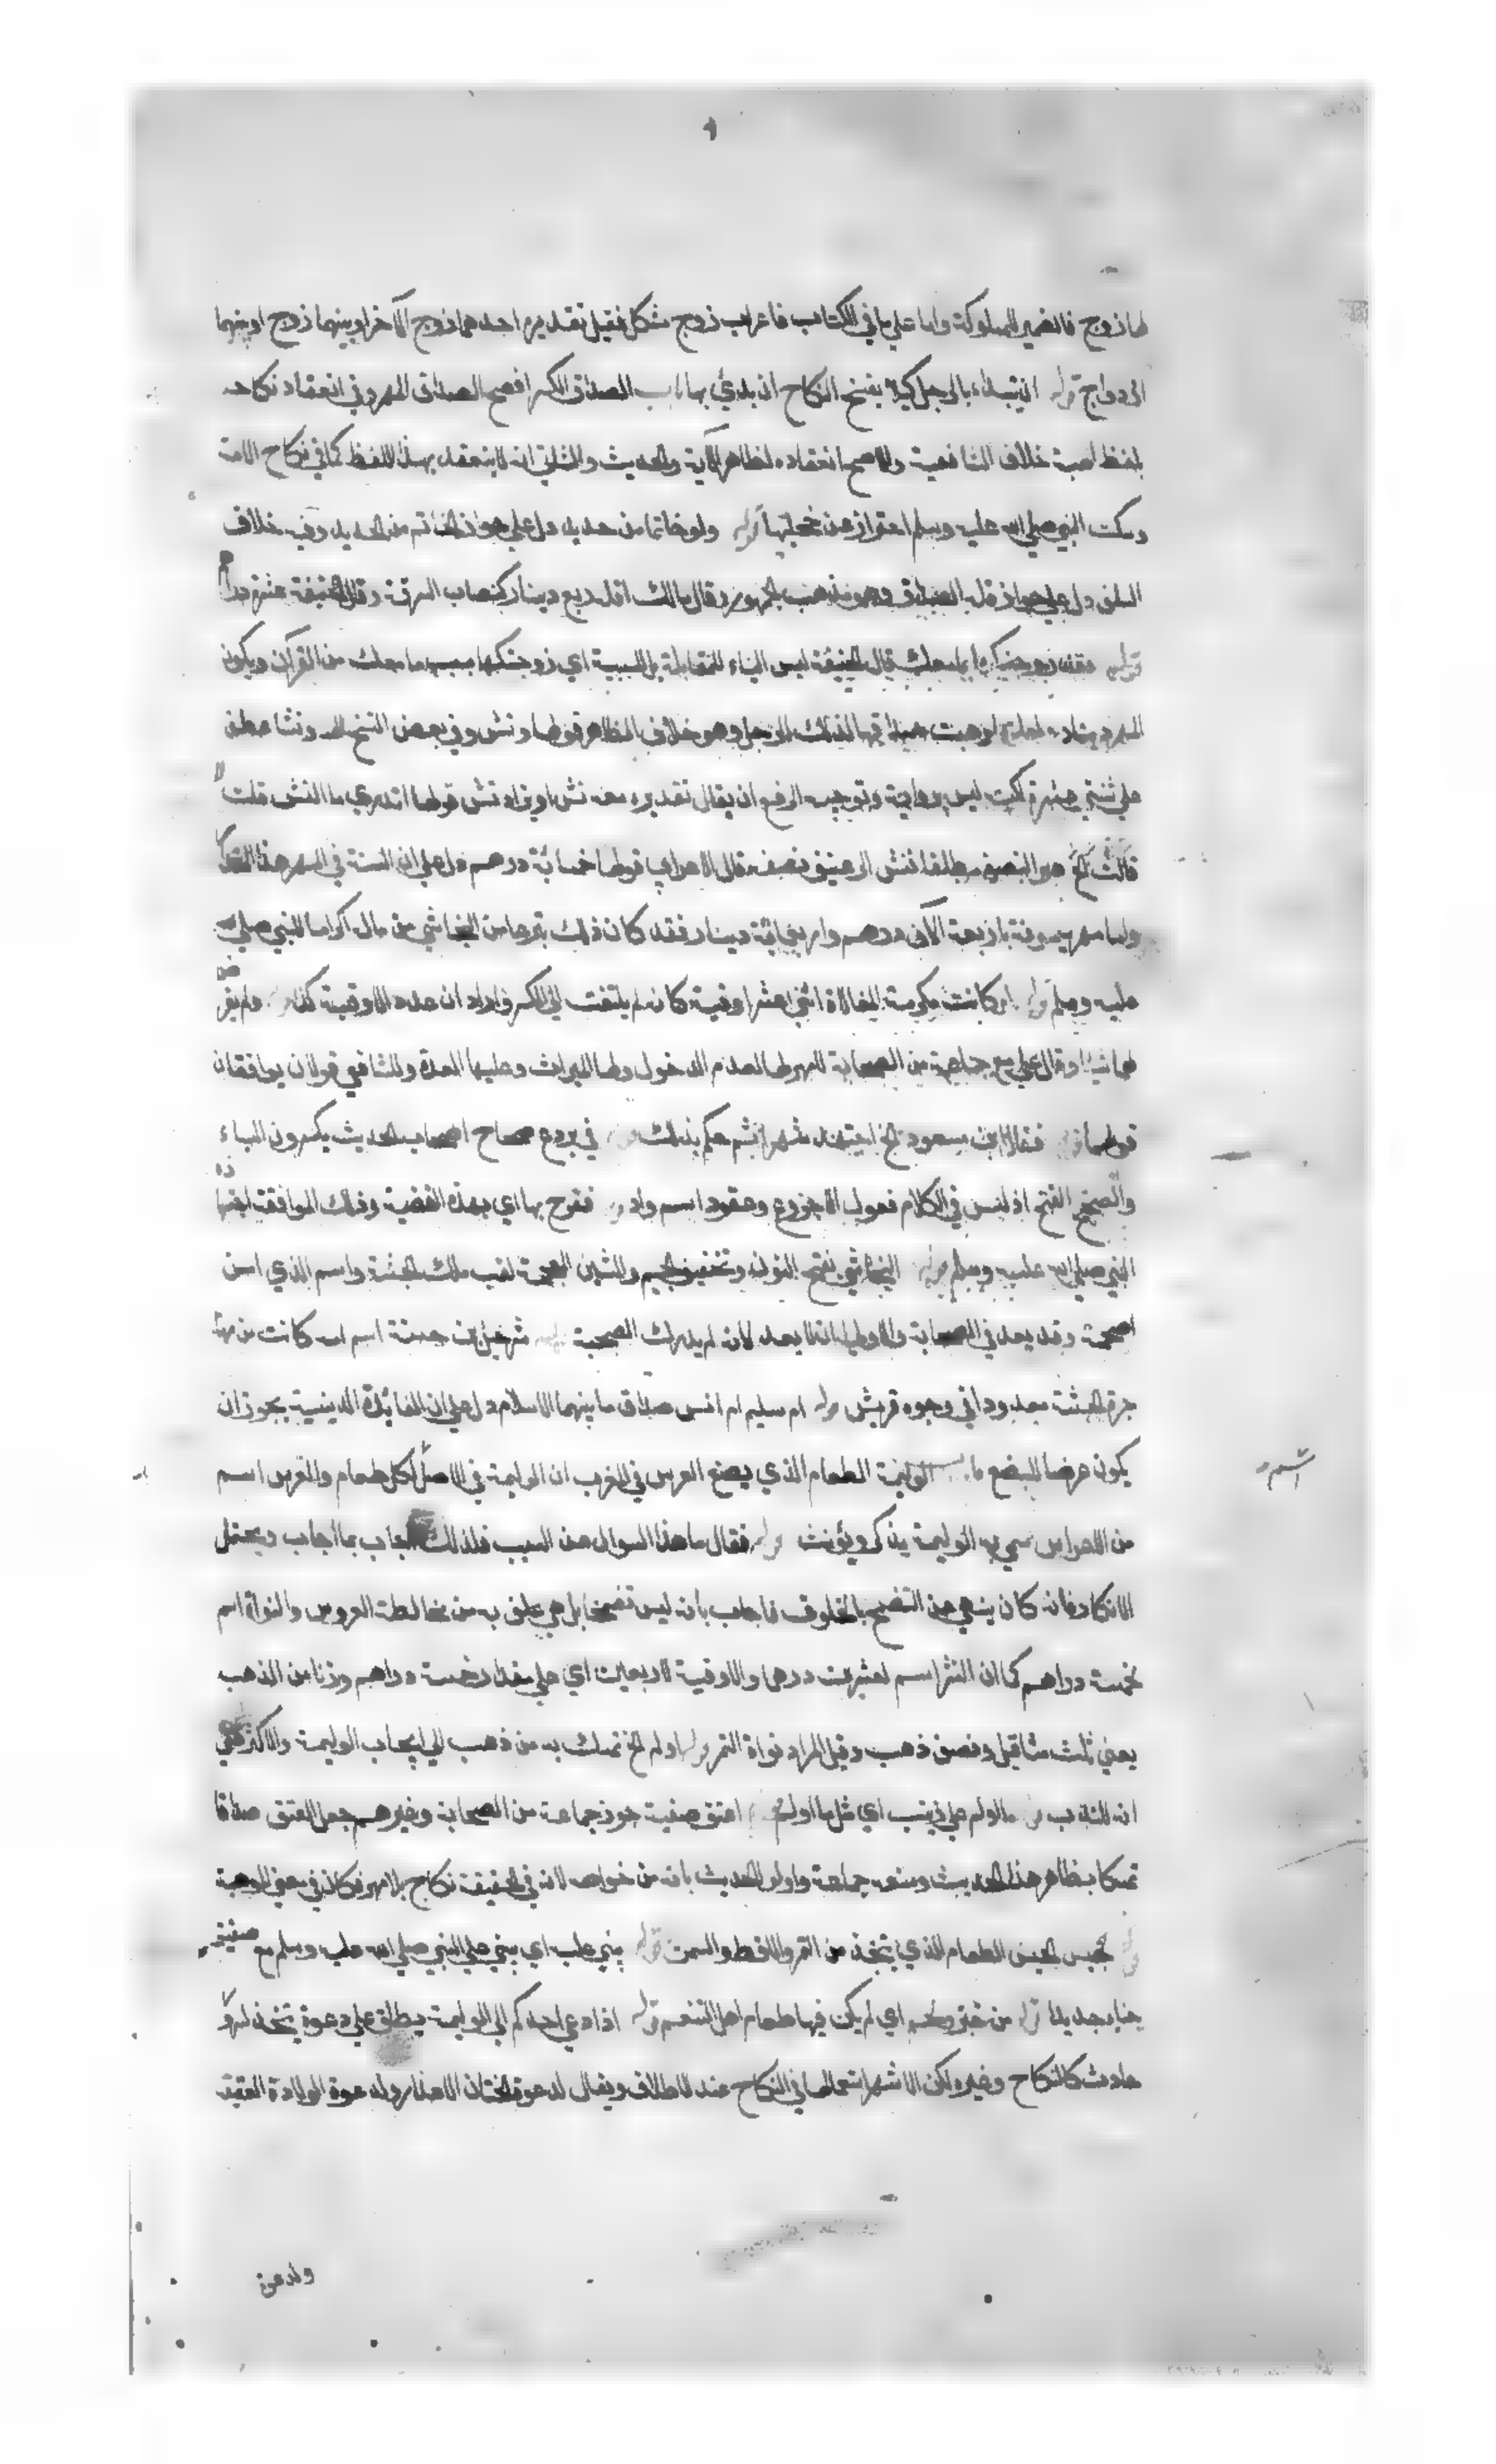 لها زوج فالضمير للمملوكة واما على ما في الكتاب فاعراب زوج مشكل فقيل تقديره احدهما زوج الآخر او بينهما زوج او بينهما
ازدواج قوله ان تبداء بالرجل كيلا يفسخ النكاح ان بدئ بها باب الصداق الكسر افصح الصداق المهر وفي انعقاد نكاحه
بلفظ الهبة خلاف الشافعية والاصح انعقاده لظاهر الآية والحديث والثاني انه لا ينعقد بهذا اللفظ كما في نكاح الامة
وسكت النبي صلى الله عليه وسلم احتراز عن خجلتها قوله ولو خاتما من حديد دل على جواز الخاتم من الحديد وفيه خلاف
السلف دل على جواز قلة الصداق وهو مذهب الجمهور وقال مالك اقله ربع دينار كنصاب السرقة وقال الحنيفة عشرة دراهم
قوله فقد زوجتكها بما معك قال الحنيفة ليس الباء للمقابلة بل للسببية اي زوجتكها بسبب ما معك من القرآن ويكون
المهر دينا ولعلها وهبت صداقها لذلك الرجل وهو خلاف الظاهر قولها ونش وفي بعض النسخ ونشا عطف
على ثنتي عشرة لكنه ليس برواية وتوجيه الرفع ان يقال تقديره معه نش او يزاد نش قولها اتدري ما النش قلت لا
قالت الخ هو النصف مطلقا فنش الرغيف نصفه قال الاعرابي قولها خمسمائة درهم دل على ان السنة في المهر هذا القدر
واما مهر ميمونة باربعة الآف درهم واربعمائة دينار فقد كان ذلك تبرعا من النجاشي من مال اكراما للنبي صلى الله
عليه وسلم قوله لو كانت مكرمة المغالاة اثني عشر اوقية كانه لم يلتفت الى الكسر واراد ان عدد الاوقية كذا قوله ولم يفرض
لها شيئا وقال علي مع جماعة من الصحابة لا مهر لها لعدم الدخول ولها الميراث وعليها العدة وللشافعي قولان يوافقان
قولهما قوله فقال ابن مسعود الخ اجتهد شهرا ثم حكم بذلك قوله في بروع صحاح اصحاب الحديث يكسرون الباء
والصحيح الفتح اذ ليس في الكلام فعول الا خروع وعتود اسم واد قوله ففرح بها اي بهذه القضية وذلك لموافقة اجتهاده
النبي صلى الله عليه وسلم قوله النجاشي بفتح النون وتخفيف الجيم والشين المعجمة لقب ملك الحبشة واسم الذي اسلم
اصحمة وقد يعد في الصحابة والاولى ان لا يعد لانه لم يدرك الصحبة قوله شرحبيل بن حسنة اسم امه كانت من مها
جرة الحبشة معدودا في وجوه قريش قوله ام سليم ام انس صداق ما بينهما الاسلام دل على ان الفائدة الدينية يجوز ان
يكون عوضا للبضع باب الوليمة الطعام الذي يصنع العرس في المغرب ان الوليمة في الاصل اسم لكل طعام والعرس اسم
من الاعراس سمي به الوليمة يذكر ويؤنث قوله فقال ما هذا السوال عن السبب فلذلك اجاب بما اجاب ويحتمل
الانكار فانه كان ينهي عن التضمخ بالخلوف فاجاب بانه ليس تضمخا بل هي علق به من مخالطة العروس والنواة اسم
لخمسة دراهم كما ان النش اسم لعشرين درهما والاوقية لاربعين اي على مقدار خمسة دراهم وزنا من الذهب
يعني ثلث مثاقيل ونصف ذهب وقيل المراد نواة التمر قوله اولم الخ تمسك به من ذهب الى ايجاب الوليمة والاكثر على
انه للندب قوله ما اولم على زينب اي مثل ما اولم قوله اعتق صفية جوز جماعة من الصحابة وغيرهم جعل العتق صداقا
تمسكا بظاهر هذا الحديث ومنعه جماعة واولوا الحديث بانه من خواصه لانه في الحقيقة نكاح بلا مهر فكان في معنى الموهبة
قوله بحيس الحيس الطعام الذي يتخذ من التمر والاقط والسمن قوله يبني عليه اي يبني على النبي صلى الله عليه وسلم مع صفية
خباء جديدا قوله من خبز ولحم اي لم يكن فيها طعام اهل التنعم قوله اذا دعي احدكم الى الوليمة يطلق على دعوة تتخذ لسرور
حادث كالنكاح وغيره لكن الاشهر استعمالها في النكاح عند الاطلاق ويقال لدعوة الختان الاعذار ولدعوة الولادة العقيقة
ولدعوة